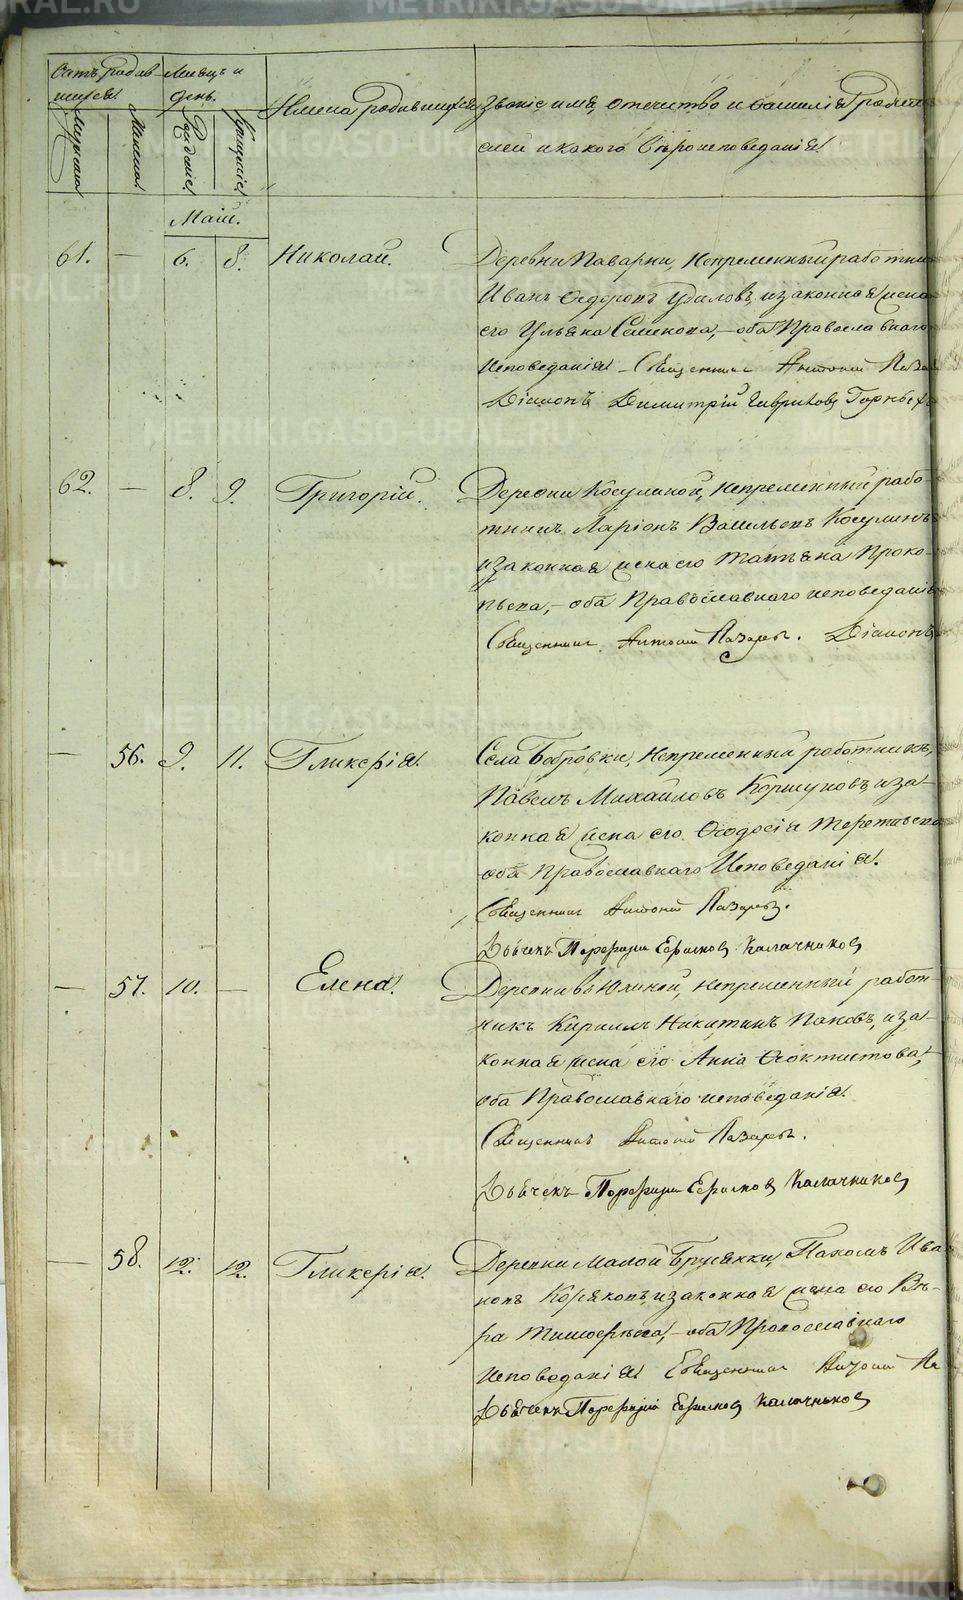 Счетъ родив-
шихся.
Мужеска
Женска
Мѣсяцъ и
день.
Рожденіе.
Крещеніе.
Имена родившихся
Званіе, имя, отечество и фамилія Родите-
лей и какого Вѣроисповеданія.
Маій.
61. — 6. 8. Николай.
Деревни Поварни, Непременный работни
Иванъ Ѳедоровъ Удаловъ, и законная жена
его Ульяна Семенова, — оба Православнаго
Исповеданія. Священник Антоний Лаза
Діаконъ Димитрій Гавриловъ
62. — 8. 9. Григорій.
Деревни Косулиной, Непременный рабо-
тникъ Ларіонъ Васильевъ Косулинъ
и законная жена его Татьяна Проко-
пьева, — оба Православнаго исповеданія
Священник Антоний Лазарев. Діаконъ
— 56. 9. 11. Гликерія.
Села Бобровки, Непременный работникъ,
Павелъ Михайловъ Коршуновъ, и за-
конная жена его Ѳеодосія Терентьева
оба Православнаго Исповеданія.
Священник Антоний Лазарев.
Дьячекъ Порфирий Ефимов Калачников
— 57. 10. — Елена.
Деревни Вьюхиной, Непременный работ-
никъ Кириллъ Никитинъ Пановъ, и за-
конная жена его Анна Ѳеоктистова,
оба Православнаго исповеданія.
Священник Антоний Лазарев.
Дьячекъ Порфирий Ефимов Калачников
— 58. 12. 12. Гликерія.
Деревни Малой Брусянки, Пахомъ Ива-
новъ Коряковъ, и законная жена его Вѣ-
ра Тимофеева, — оба Православнаго
Исповеданія Священник Антоний Ла
Дьячекъ Порфирий Ефимов Калачников
METRIKI.GASO-URAL.RU